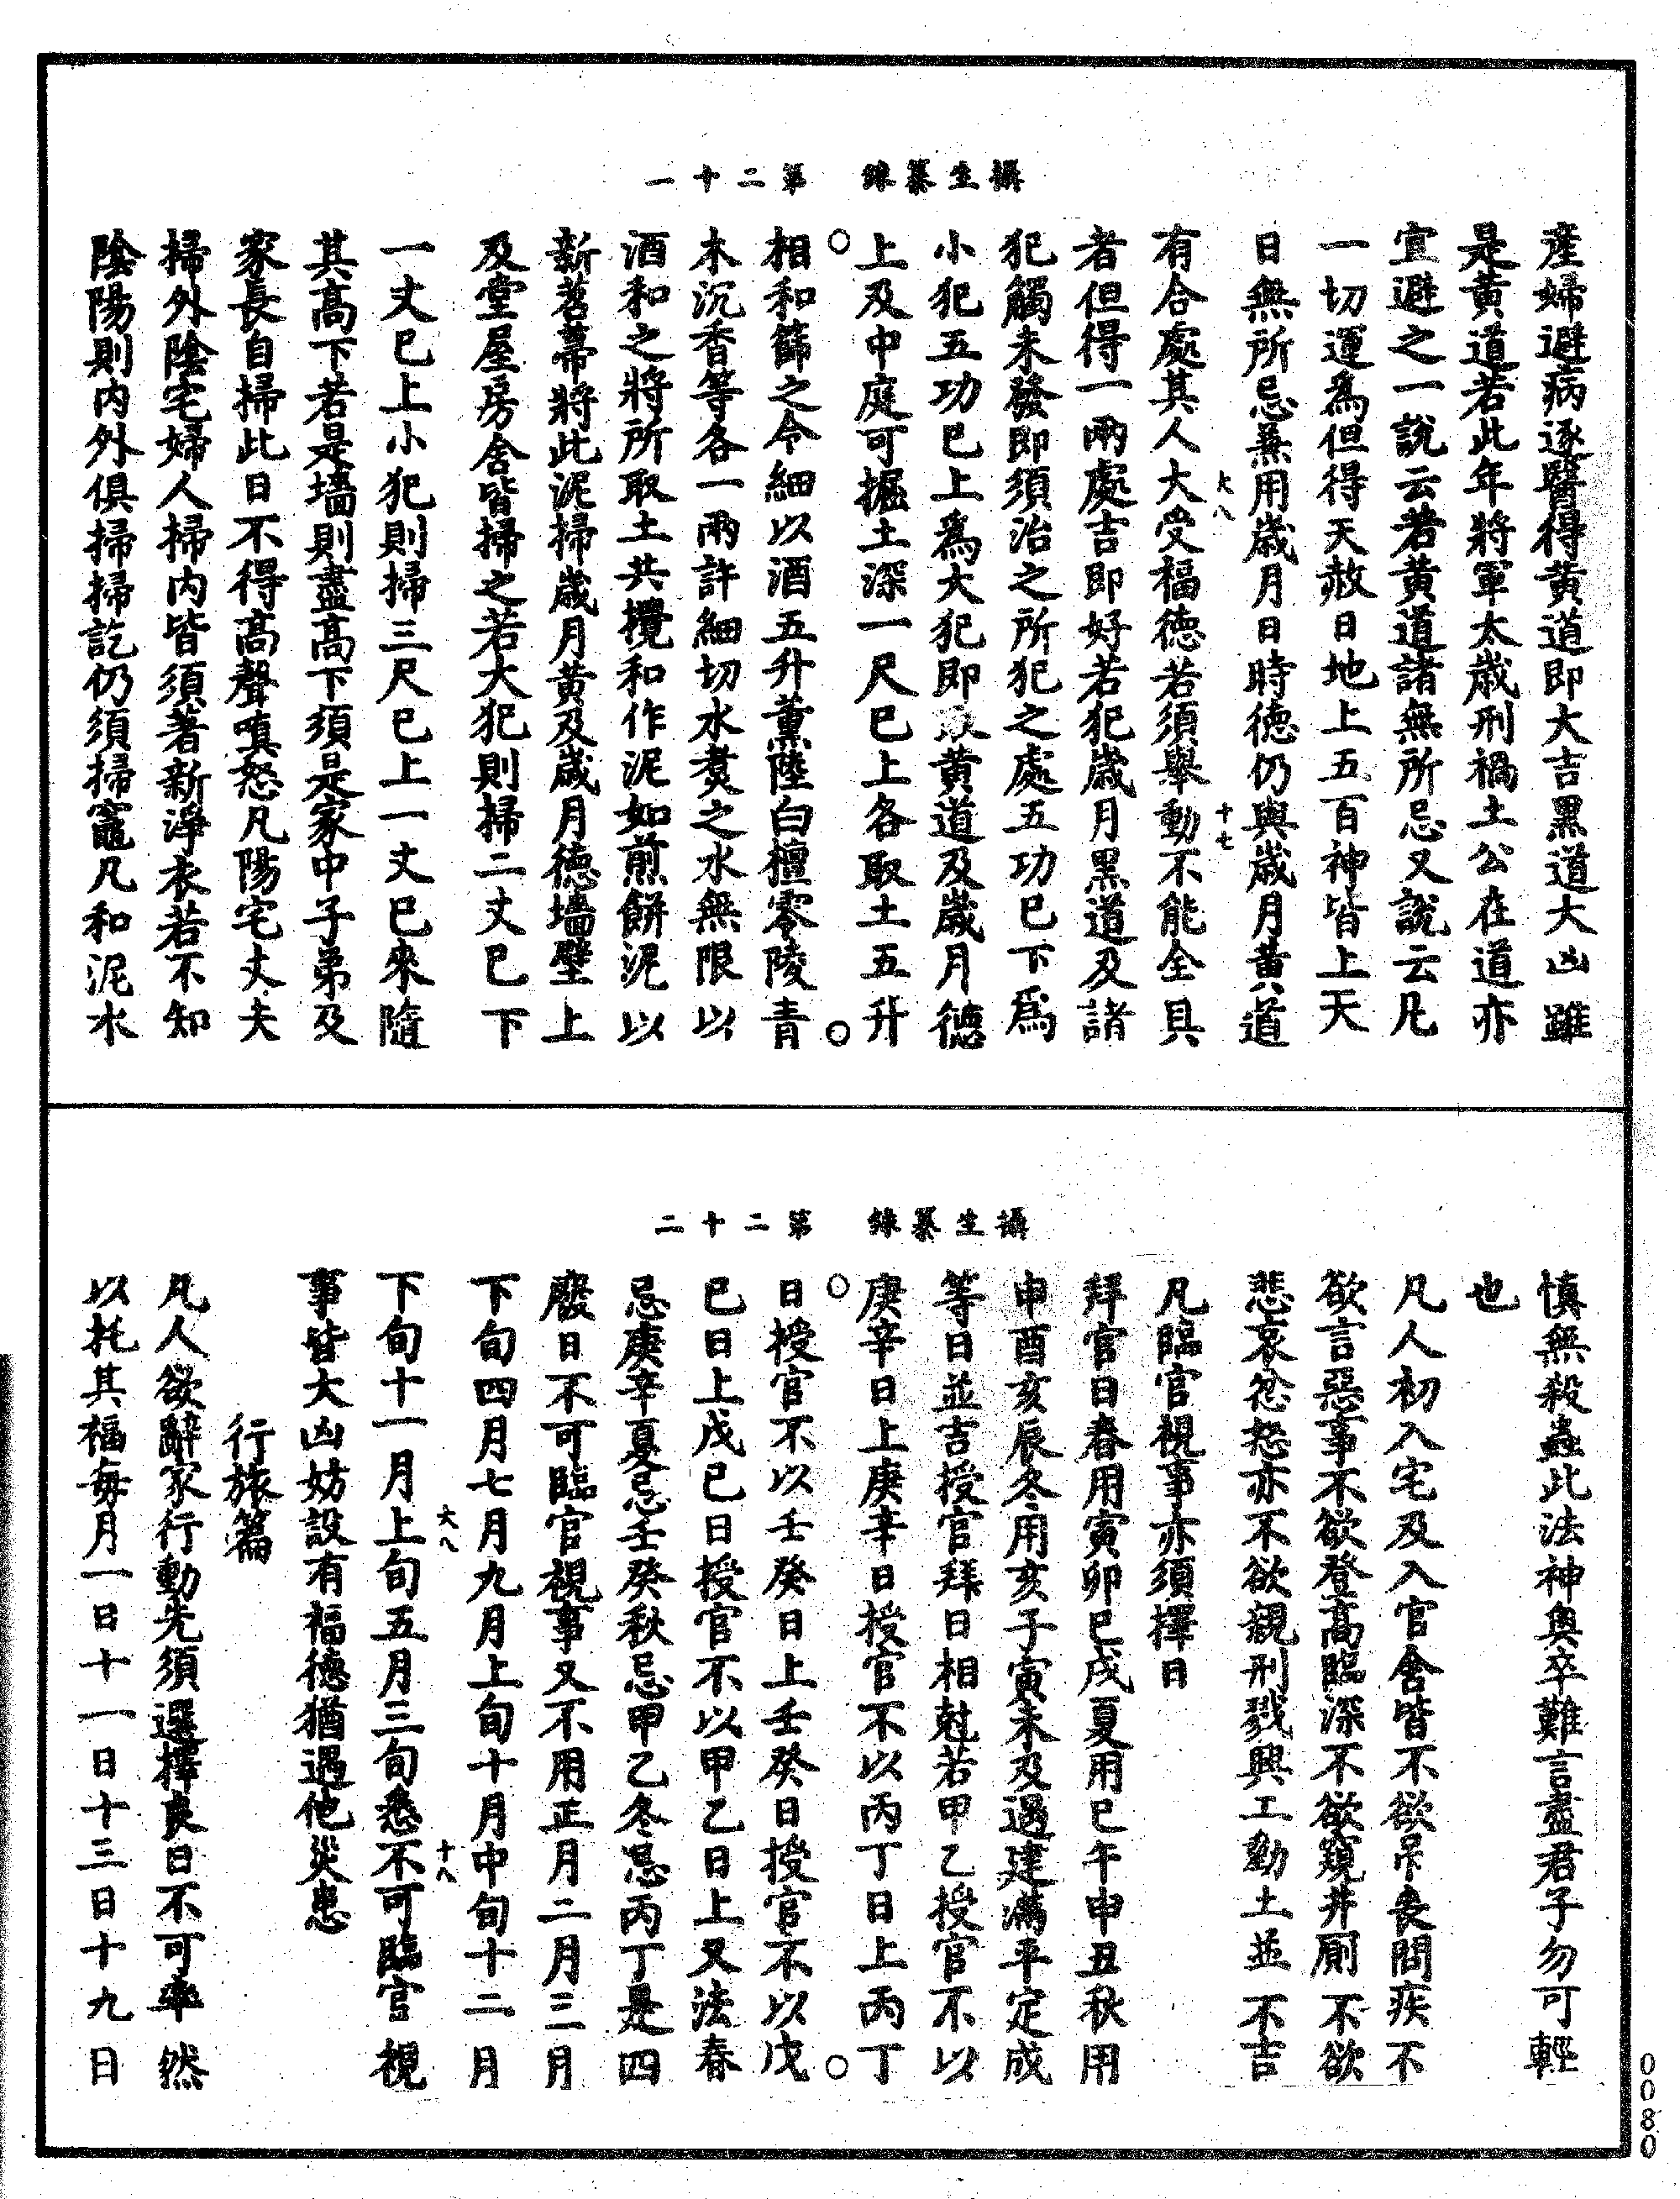 攝生纂錄　第二十一
產婦避病逐醫得黃道即大吉黑道大凶雖
是黃道若此年將軍太歲刑禍土公在道亦
宜避之一說云若黃道諸無所忌又說云凡
一切運為但得天赦日地上五百神皆上天
日無所忌兼用歲月日時德仍與歲月黃道
大八　十七
有合處其人大受福德若須舉動不能全具
者但得一兩處吉即好若犯歲月黑道及諸
犯觸未發即須治之所犯之處五功已下爲
小犯五功已上爲大犯即取黃道及歲月德
上及中庭可掘土深一尺已上各取土五升
相和篩之令細以酒五升薰陸白檀零陵青
木沉香等各一兩許細切水煑之水無限以
酒和之將所取土共攪和作泥如煎餅泥以
新苕蔕將此泥掃歲月黃及歲月德墻壁上
及堂屋房舍皆掃之若大犯則掃二丈已下
一丈已上小犯則掃三尺已上一丈已來隨
其高下若是墻則盡高下須是家中子弟及
家長自掃此日不得高聲嗔怒凡陽宅丈夫
掃外陰宅婦人掃內皆須著新淨衣若不知
陰陽則內外俱掃掃訖仍須掃竈凡和泥水
攝生纂錄　第二十二
慎無殺蟲此法神奧卒難言盡君子勿可輕
也
凡人初入宅及入官舍皆不欲吊喪問疾不
欲言惡事不欲登高臨深不欲窺井厠不欲
悲哀忿怒亦不欲覩刑戮興工動土並不吉
凡臨官視事亦須擇日
拜官日春用寅卯巳戌夏用巳午申丑秋用
申酉亥辰冬用亥子寅未及遇建滿平定成
等日並吉授官拜日相尅若甲乙授官不以
庚辛日上庚辛日授官不以丙丁日上丙丁
日授官不以壬癸日上壬癸日授官不以戊
巳日上戊巳日授官不以甲乙日上又法春
忌庚辛夏忌壬癸秋忌甲乙冬忌丙丁是四
廢日不可臨官視事又不用正月二月三月
下旬四月七月九月上旬十月中旬十二月
大八　十八
下旬十一月上旬五月三旬悉不可臨官視
事皆大凶妨設有福德猶遇他災患
行旅篇
凡人欲辭家行動先須選擇良日不可率然
以托其福每月一日十一日十三日十九日
0080